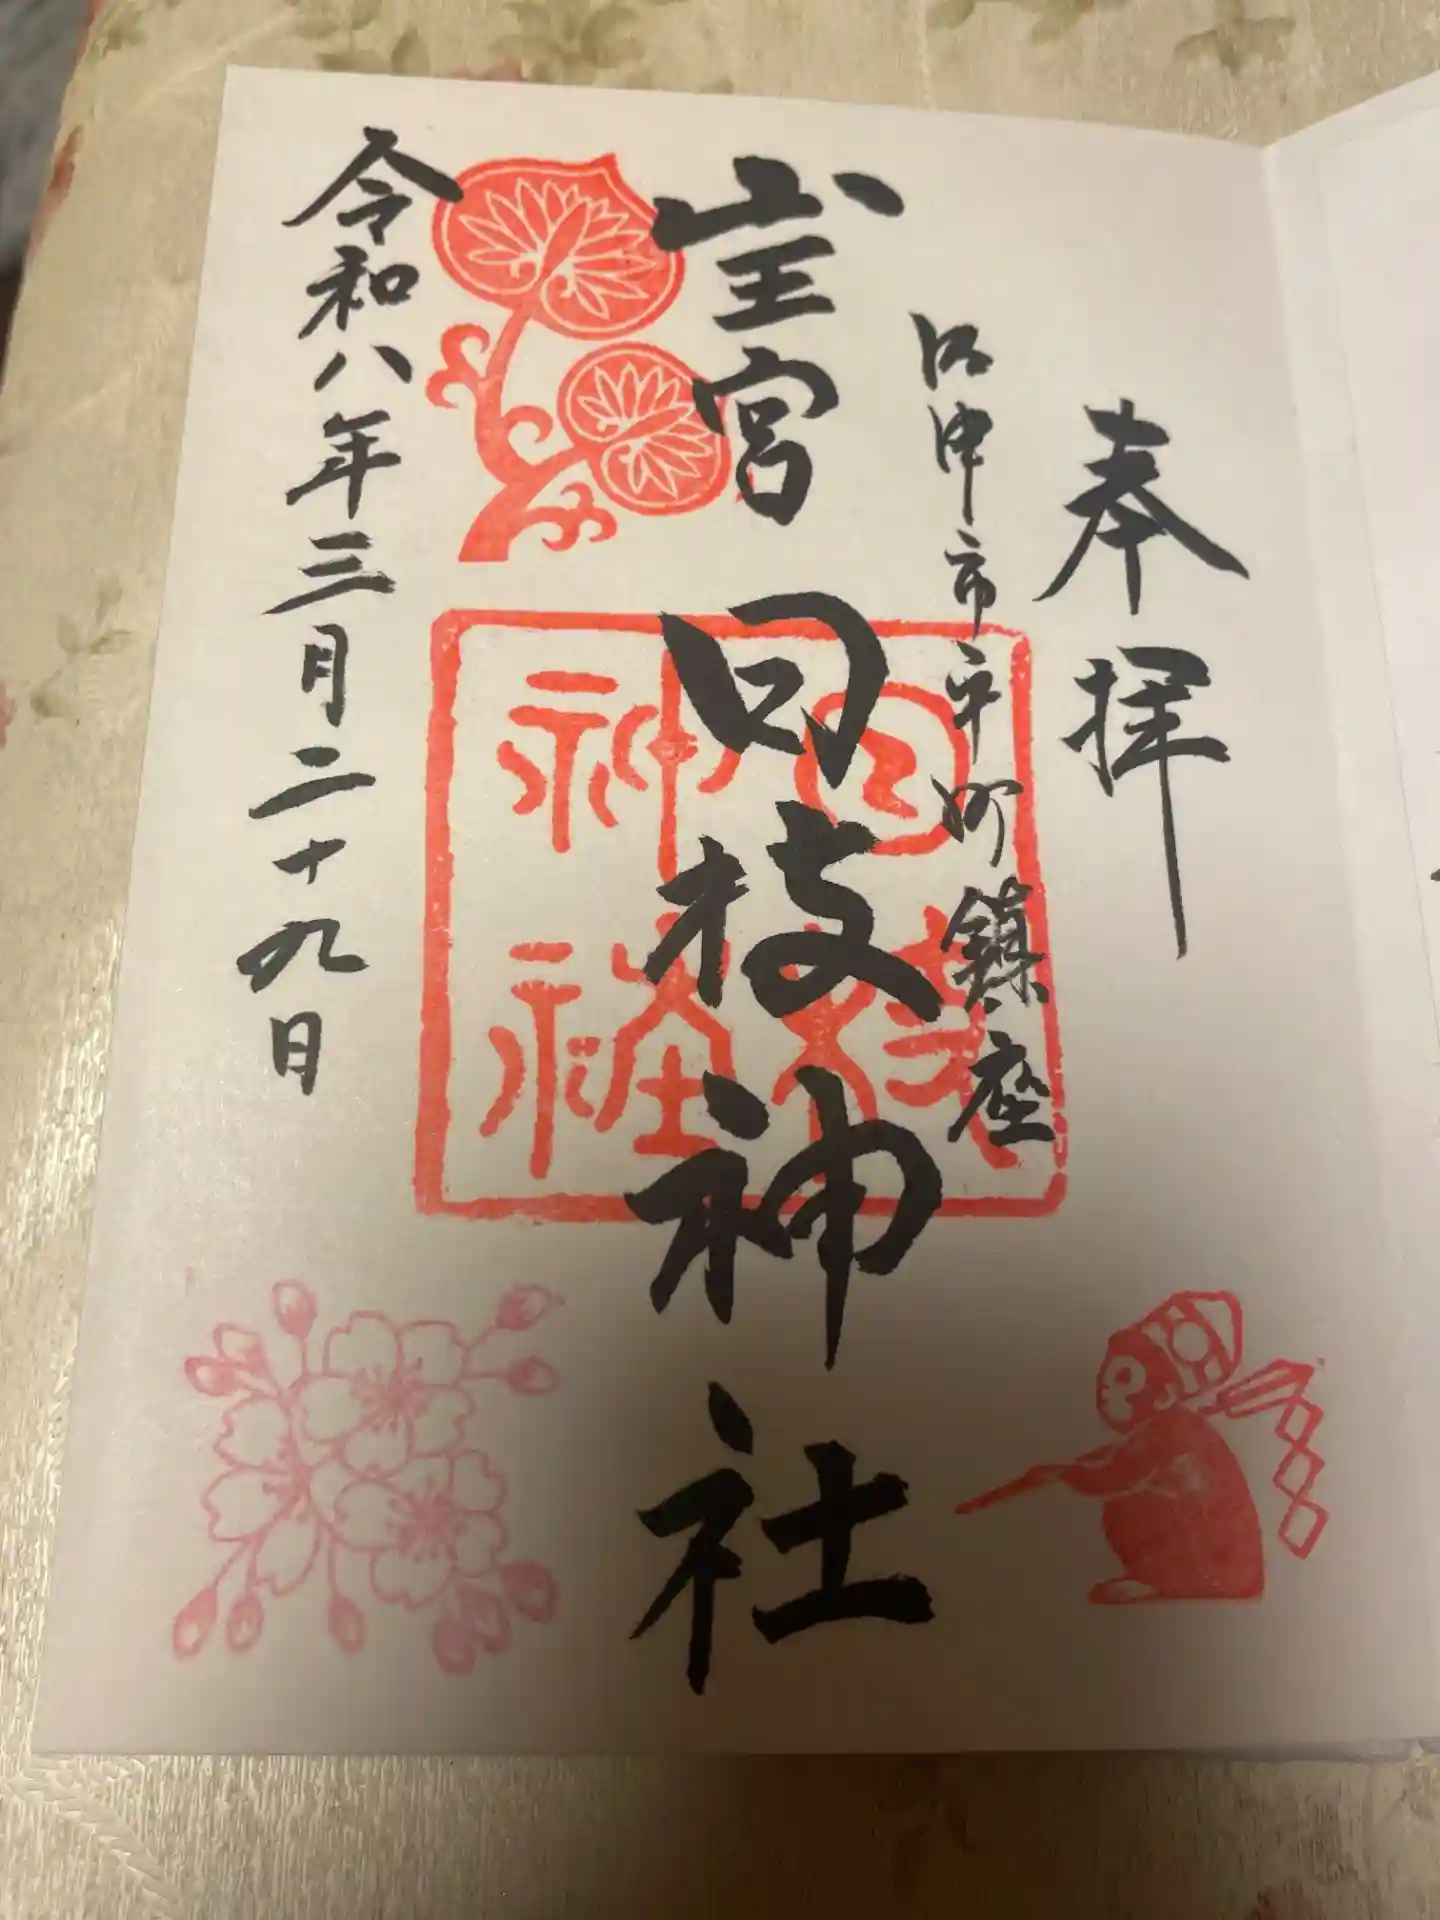 奉拝
沼津市平町鎮座
山王宮 日枝神社
令和八年三月二十九日
日枝
神社